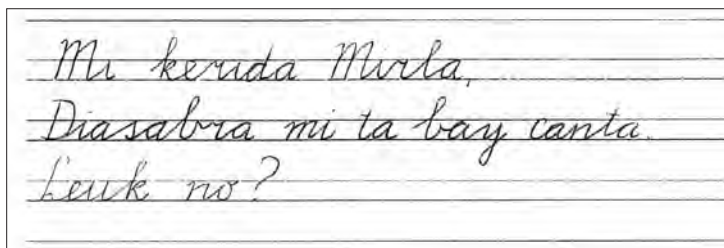 Mi kerida Mirla,
Diasabra mi ta bay canta.
Leuk no?